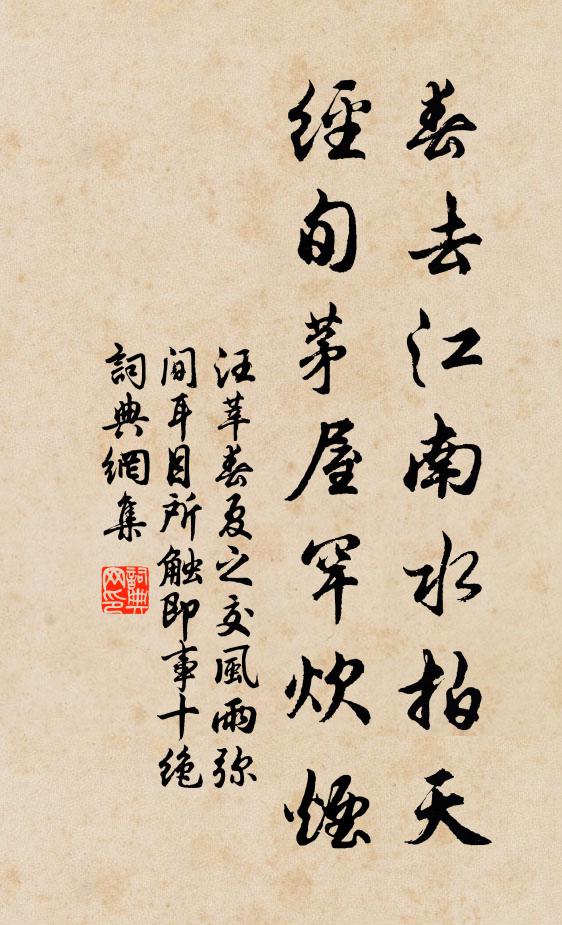 春去江南水拍天
經旬茅屋罕炊煙
汪莘春夏之交風雨弥
间耳目所触即事十绝
詞典網集
詞典
网印